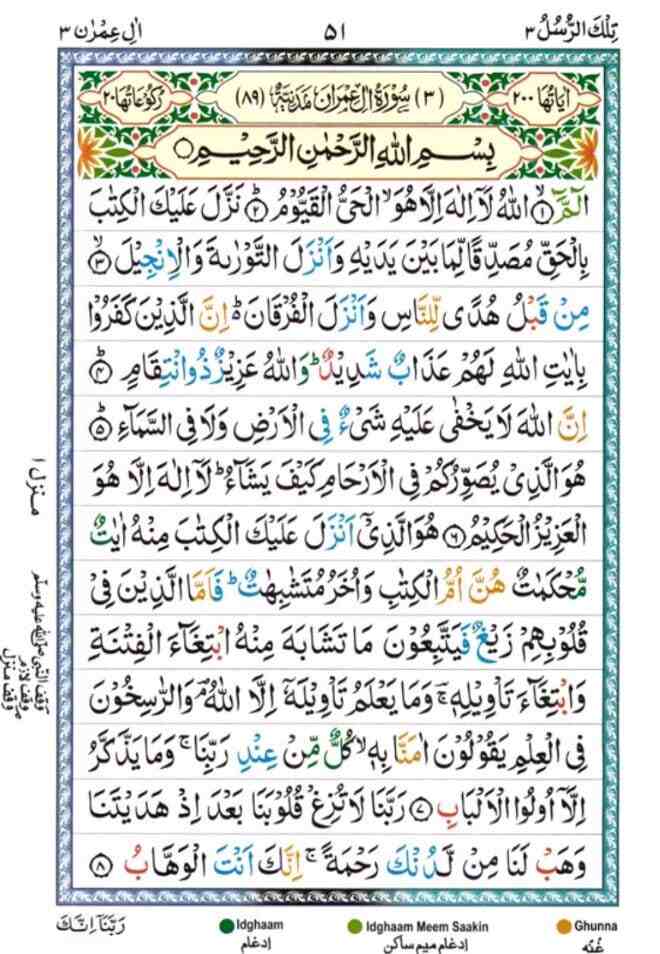 تِلْكَ الرُّسُلُ ٣
٥١
اٰلِ عِمْرٰن ٣
اٰیَاتُهَا ٢٠٠
(٣) سُوْرَةُ اٰلِ عِمْرَانَ مَدَنِیَّةٌ (٨٩)
رُكُوْعَاتُهَا ٢٠
بِسْمِ اللّٰهِ الرَّحْمٰنِ الرَّحِیْمِ
الٓمَّٓ ۙ﴿١﴾ اللّٰهُ لَاۤ اِلٰهَ اِلَّا هُوَ ۙ الْحَیُّ الْقَیُّوْمُ ؕ﴿٢﴾ نَزَّلَ عَلَیْكَ الْكِتٰبَ
بِالْحَقِّ مُصَدِّقًا لِّمَا بَیْنَ یَدَیْهِ وَاَنْزَلَ التَّوْرٰىةَ وَالْاِنْجِیْلَ ۙ﴿٣﴾
مِنْ قَبْلُ هُدًی لِّلنَّاسِ وَاَنْزَلَ الْفُرْقَانَ ؕ۬ اِنَّ الَّذِیْنَ كَفَرُوْا
بِاٰیٰتِ اللّٰهِ لَهُمْ عَذَابٌ شَدِیْدٌ ؕ وَاللّٰهُ عَزِیْزٌ ذُو انْتِقَامٍ ؕ﴿٤﴾
اِنَّ اللّٰهَ لَا یَخْفٰی عَلَیْهِ شَیْءٌ فِی الْاَرْضِ وَلَا فِی السَّمَآءِ ؕ﴿٥﴾
هُوَ الَّذِیْ یُصَوِّرُكُمْ فِی الْاَرْحَامِ كَیْفَ یَشَآءُ ؕ لَاۤ اِلٰهَ اِلَّا هُوَ
الْعَزِیْزُ الْحَكِیْمُ ﴿٦﴾ هُوَ الَّذِیْۤ اَنْزَلَ عَلَیْكَ الْكِتٰبَ مِنْهُ اٰیٰتٌ
مُّحْكَمٰتٌ هُنَّ اُمُّ الْكِتٰبِ وَاُخَرُ مُتَشٰبِهٰتٌ ؕ فَاَمَّا الَّذِیْنَ فِیْ
قُلُوْبِهِمْ زَیْغٌ فَیَتَّبِعُوْنَ مَا تَشَابَهَ مِنْهُ ابْتِغَآءَ الْفِتْنَةِ
وَابْتِغَآءَ تَاْوِیْلِهٖ ۚ وَمَا یَعْلَمُ تَاْوِیْلَهٗۤ اِلَّا اللّٰهُ ۘ وَالرّٰسِخُوْنَ
فِی الْعِلْمِ یَقُوْلُوْنَ اٰمَنَّا بِهٖ ۙ كُلٌّ مِّنْ عِنْدِ رَبِّنَا ۚ وَمَا یَذَّكَّرُ
اِلَّاۤ اُولُوا الْاَلْبَابِ ﴿٧﴾ رَبَّنَا لَا تُزِغْ قُلُوْبَنَا بَعْدَ اِذْ هَدَیْتَنَا
وَهَبْ لَنَا مِنْ لَّدُنْكَ رَحْمَةً ۚ اِنَّكَ اَنْتَ الْوَهَّابُ ﴿٨﴾
منزل ١
وقف النبی صلی اللہ علیہ وسلم
وقف لازم
وقف منزل
رَبَّنَاۤ اِنَّكَ
Idghaam
إدغام
Idghaam Meem Saakin
إدغام میم ساکن
Ghunna
غُنّه